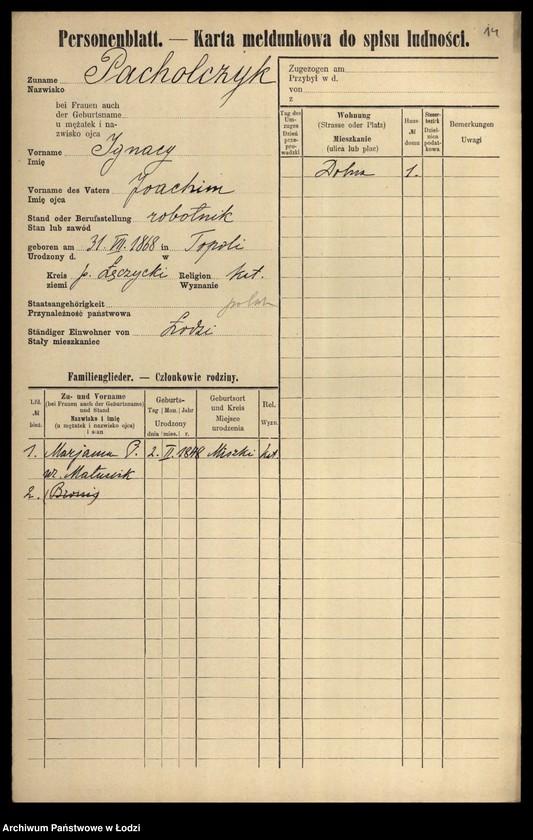 14
Personenblatt. — Karta meldunkowa do spisu ludności.
Zuname
Nazwisko Pacholczyk
bei Frauen auch
der Geburtsname
u mężatek i na-
zwisko ojca
Vorname Ignacy
Imię
Vorname des Vaters Joachim
Imię ojca
Stand oder Berufsstellung robotnik
Stan lub zawód
geboren am 31. VII. 1868 in Topoli
Urodzony d. w
Kreis p. Łęczycki Religion kat.
ziemi Wyznanie
Staatsangehörigkeit
Przynależność państwowa
Ständiger Einwohner von Łodzi
Stały mieszkaniec
Familienglieder. — Członkowie rodziny.
Lfd. № bież.
Zu- und Vorname
(bei Frauen auch der Geburtsname)
und Stand
Nazwisko i imię
(u mężatek i nazwisko ojca)
i stan
Geburts-
Tag | Mon. | Jahr
Urodzony
dnia | mies. | r.
Geburtsort
und Kreis
Miejsce
urodzenia
Rel.
Wyzn.
1. Marjanna P. 2. II. kat.
2.
Zugezogen am
Przybył w d.
von
z
Tag des Um-
zuges
Dzień
prze-
pro-
wadzki
Wohnung
(Strasse oder Platz)
Mieszkanie
(ulica lub plac)
Haus-
№
domu
Steuer-
bezirk
Dziel-
nica
podat-
kowa
Bemerkungen
Uwagi
Dolna 1.
Archiwum Państwowe w Łodzi